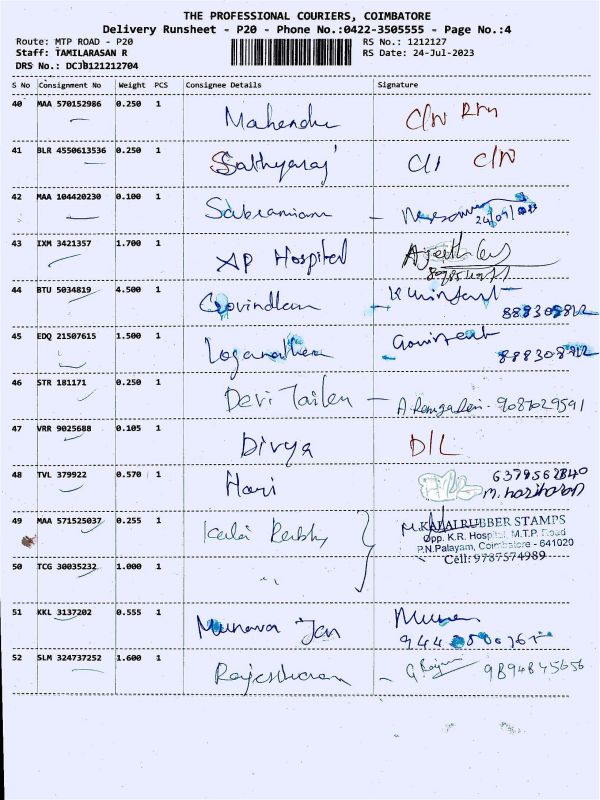 THE PROFESSIONAL COURIERS, COIMBATORE
Delivery Runsheet - P20 - Phone No.:0422-3505555 - Page No.:4
Route: MTP ROAD - P20 RS No.: 1212127
Staff: TAMILARASAN R RS Date: 24-Jul-2023
DRS No.: DCJB121212704
S No Consignment No Weight PCS Consignee Details Signature
40 MAA 570152986 0.250 1 Mahendu C/N RTN
41 BLR 4550613536 0.250 1 Sathyaraj C/N
42 MAA 104420230 0.100 1
43 IXM 3421357 1.700 1 AP Hospital
44 BTU 5034819 4.500 1
45 EDQ 21507615 1.500 1
46 STR 181171 0.250 1 Devi 9087029591
47 VRR 9025688 0.105 1 Divya D/L
48 TVL 379922 0.570 1 Hari
m. hariharan
49 MAA 571525037 0.255 1 KALAI RUBBER STAMPS
Opp. K.R. Hospital, M.T.P. Road
P.N.Palayam, Coimbatore - 641020
Cell: 9787574989
50 TCG 30035232 1.000 1 〃
51 KKL 3137202 0.555 1 Munavar Jan
52 SLM 324737252 1.600 1 9894845656